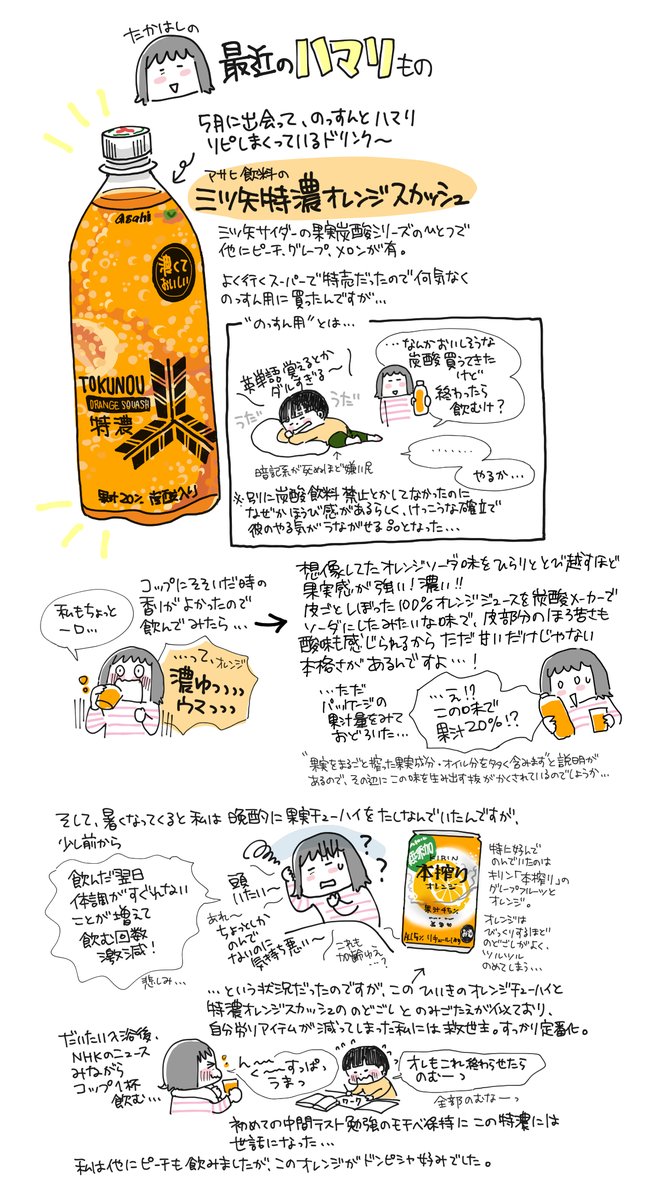 たかはしの
最近のハマりもの
5月に出会って、のっすんとハマり
リピしまくっているドリンク〜
アサヒ飲料の
三ツ矢特濃オレンジスカッシュ
三ツ矢サイダーの果実炭酸シリーズのひとつで
他にピーチ、グレープ、メロンが有。
よく行くスーパーで特売だったので何気なく
のっすん用に買ったんですが…
Asahi
濃くて
おいしい
TOKUNOU
ORANGE SQUASH
特濃
果汁20% 炭酸入り
"のっすん用"とは…
英単語覚えるとか
ダルすぎる〜
うだ〜
うだ〜
暗記系が死ぬほど嫌い尻
…なんかおいしそうな
炭酸買ってきた
けど
終わったら
飲むけ?
………
やるか…
※別に炭酸飲料禁止とかしてなかったのに
なぜかほうび感があるらしく、けっこうな確立で
彼のやる気がうながせる品となった…
私もちょっと
一口…
コップにそそいだ時の
香りがよかったので
飲んでみたら…
…って、オレンジ
濃ゆっっっっ
ウマっっっ
想像してたオレンジソーダ味をひらりととび越すほど
果実感が強い!濃い!!
皮ごとしぼった100%オレンジジュースを炭酸メーカーで
ソーダにしたみたいな味で、皮部分のほろ苦さも
酸味も感じられるからただ甘いだけじゃない
本格さがあるんですよ…!
…ただ
パッケージの
果汁量をみて
おどろいた…
…え!?
この味で
果汁20%!?
"果実をまるごと搾った果実成分・オイル分を多く含みます"と説明が
あるので、その辺にこの味を生み出す技がかくされているのでしょうか…
そして、暑くなってくると私は晩酌に果実チューハイをたしなんでいたんですが、
少し前から
飲んだ翌日
体調がすぐれない
ことが増えて
飲む回数
激減!
悲しみ…
頭
いたい〜
あれ〜
ちょっとしか
のんで
ないのに
気持ち悪い〜
これも
加齢ゆえ
…?
無添加
KIRIN
本搾り
オレンジ
果汁45%
お酒
特に好んで
のんでいたのは
キリン「本搾り」の
グレープフルーツと
オレンジ。
オレンジは
びっくりするほど
のどごしがよく、
ツルツル
のめてしまう…
…という状況だったのですが、このひいきのオレンジチューハイと
特濃オレンジスカッシュののどごしとのみごたえが似ており、
自分労りアイテムが減ってしまった私には救世主。すっかり定番化。
だいたい入浴後、
NHKのニュース
みながら
コップ1杯
飲む…
ん〜〜
く〜〜すっぱっ
うまっ
ワーク
オレもこれ終わらせたら
のむーっ
全部のむなーっ
初めての中間テスト勉強のモチベ保持にこの特濃には
世話になった…
私は他にピーチも飲みましたが、このオレンジがドンピシャ好みでした。